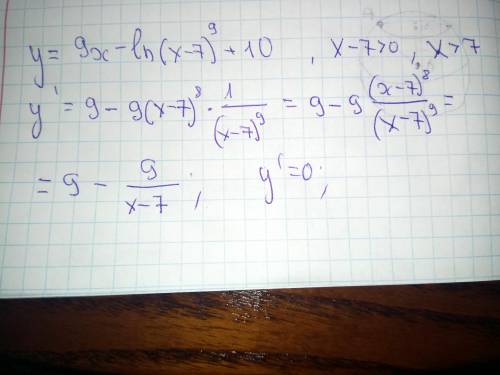 y = 9x - ln(x-7)⁹ + 10 , x-7>0, x>7
y' = 9 - 9(x-7)⁸ · 1/(x-7)⁹ = 9 - 9 (x-7)⁸/(x-7)⁹ =
= 9 - 9/(x-7) ; y'=0;